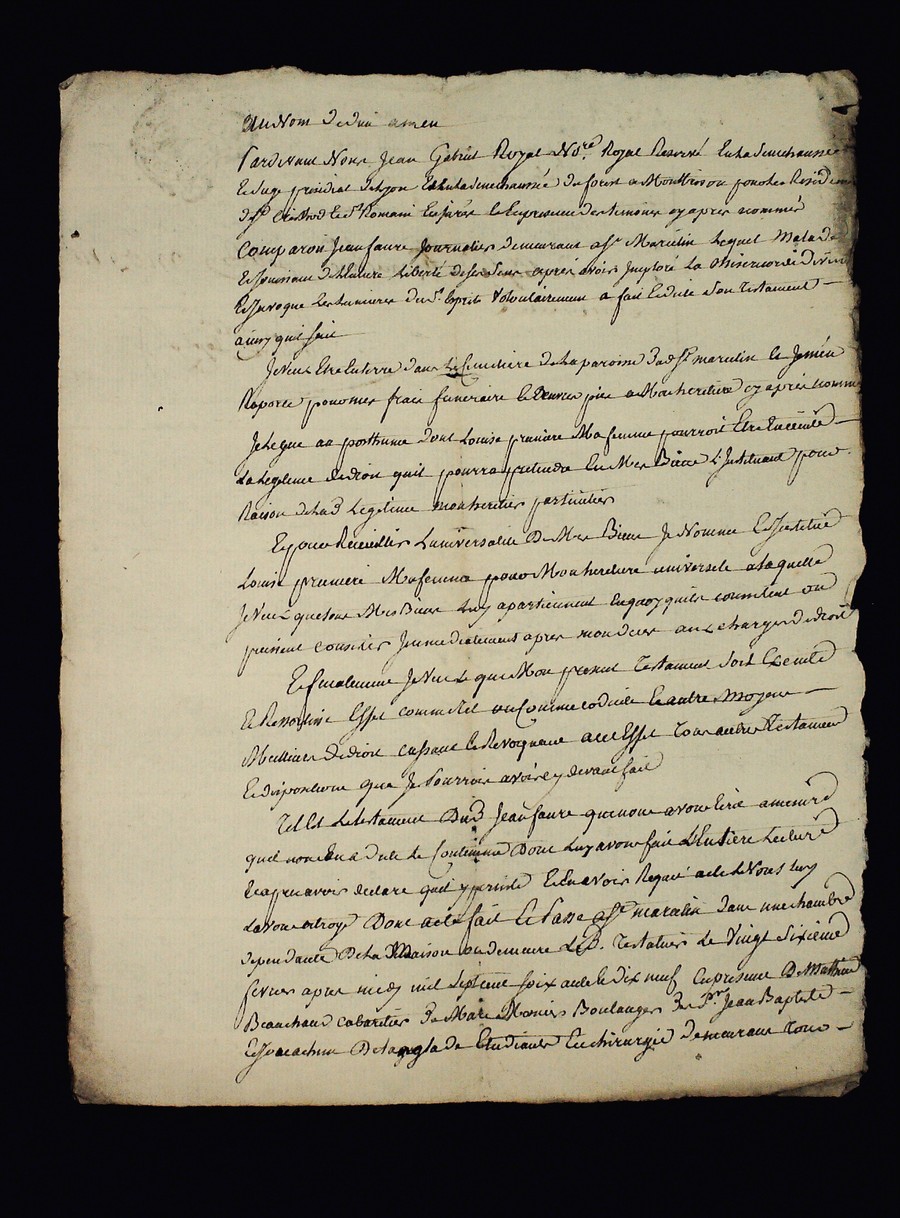 Au Nom de dieu amen
Pardevant Nous Jean Gabriel Royal No.re Royal Reservé En la Senechaussée
et siege presidial de Lyon Et En la Senechaussée de forest a Montbrison pour la Residence
de St et de St Romain En jarés Et En presence des temoins cy apres nommés
Comparoit Jean faure Journalier demeurant a St Marcelin Lequel Malade
Et Jouissant de L'entiere Liberté de ses sens apres avoir Imploré La Misericorde divine
Et Invoqué Les Lumieres du St Esprit Volontairement a fait Et dicté son Testament
ainsy quil suit
Je Veux Etre Enterré dans Le Cimetiere de La paroisse dud St marcelin Et Je m'en
Raporte pour mes frais funeraire Et Œuvres pies a Mon heritiere cy apres nommée
Je Legue au posthume dont Louise premiere Ma femme pourroit Etre Enceinte
La Legitime de droit quil pourra pretendre En Mes Biens L'Instituant pour
Raison de Lad Legitime mon heritier particulier
Et pour Recueillir L'universalité De Mes Biens Je Nomme Et Institue
Louise premiere Ma femme pour Mon heritiere universelle a Laquelle
Je Veux que tous Mes Biens Luy apartiennent En quoy quils consistent ou
puissent consister Immediatement apres mon deces aux charges de droit
Et finalement Je Veux que Mon present Testament Soit Executé
Et Ressortisse Effet comme tel ou Comme codicile Et autre Moyens
Meilleurs de droit cassant Et Revoquant a cet Effet Tous autres Testament
Et dispositions que Je Pourrois avoir cy devant fait
Tel Est Le testament Dud Jean faure que nous avons Ecrit a mesure
quil nous En a dicté Le Contenu Dont Luy avons fait L'Entiere Lecture
Et apres avoir declaré quil y persiste Et En avoir Requis acte Nous Luy
L'avons octroyé Dont acte fait Et Passé a St marcelin dans une chambre
dependante De La Maison ou demeure Led. Testateur Le Vingt Sixieme
fevrier apres midy mil Sept cent Soixante Et dix neuf En presence De Mathieu
Beauchand cabaretier De Marc Monier Boulanger De Sr Jean Baptiste
Etudiants En chirurgie demeurant tous